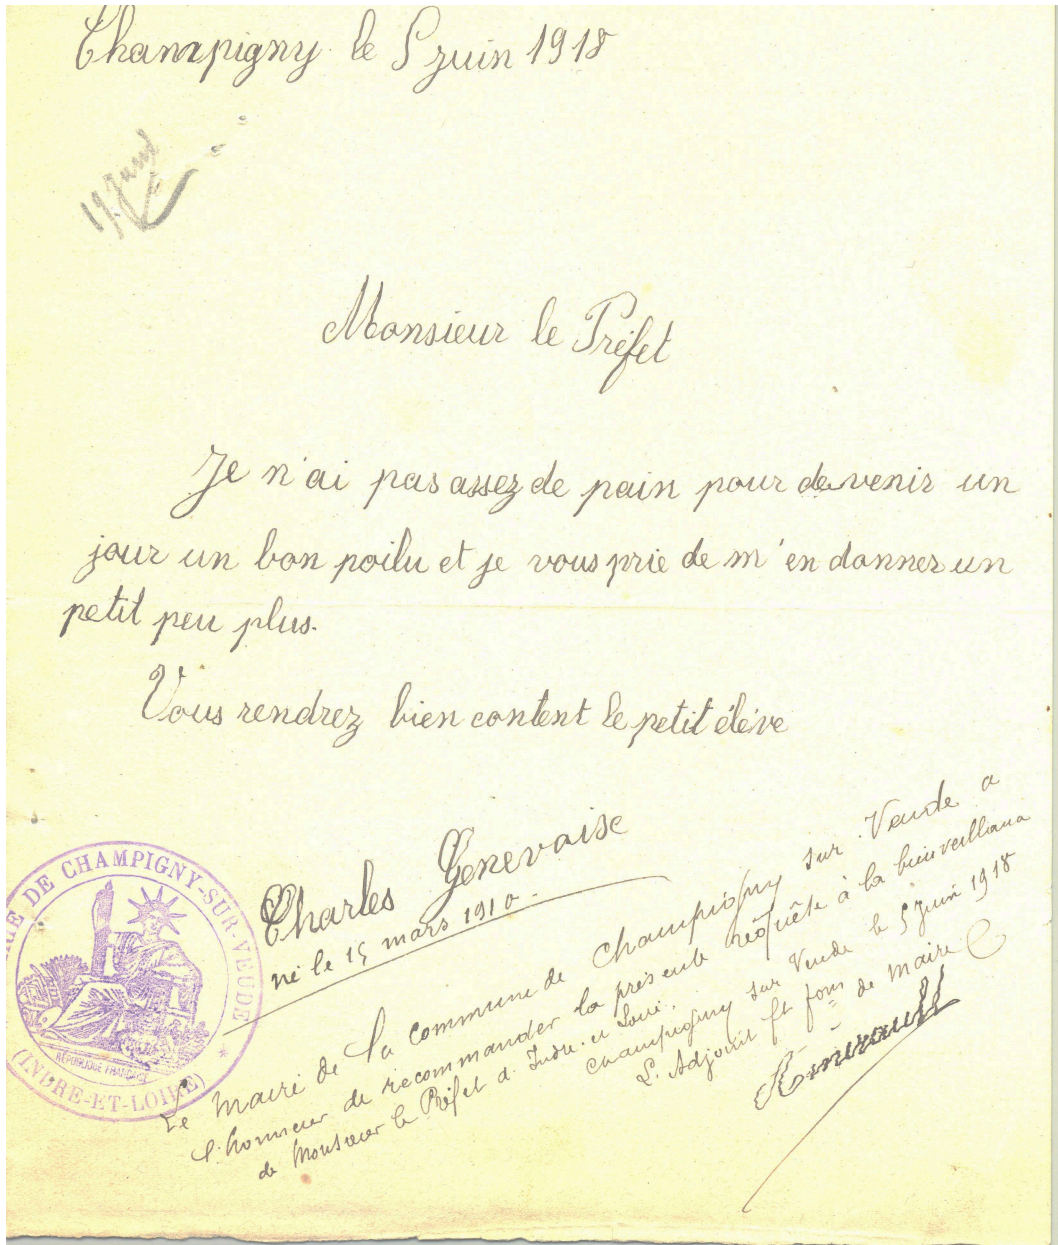 Champigny le 5 juin 1918
19. Juin
Monsieur le Préfet
Je n'ai pas assez de pain pour devenir un
jour un bon poilu et je vous prie de m'en donner un
petit peu plus.
Vous rendrez bien content le petit élève
Charles Genevoise
né le 15 mars 1910.
MAIRIE DE CHAMPIGNY-SUR-VEUDE *
RÉPUBLIQUE FRANÇAISE
(INDRE-ET-LOIRE)
Le Maire de la commune de Champigny sur Veude a
l'honneur de recommander la présente requête à la bienveillance
de Monsieur le Préfet d'Indre-et-Loire.
Champigny sur Veude le 5 Juin 1918
L'Adjoint ft fons de Maire